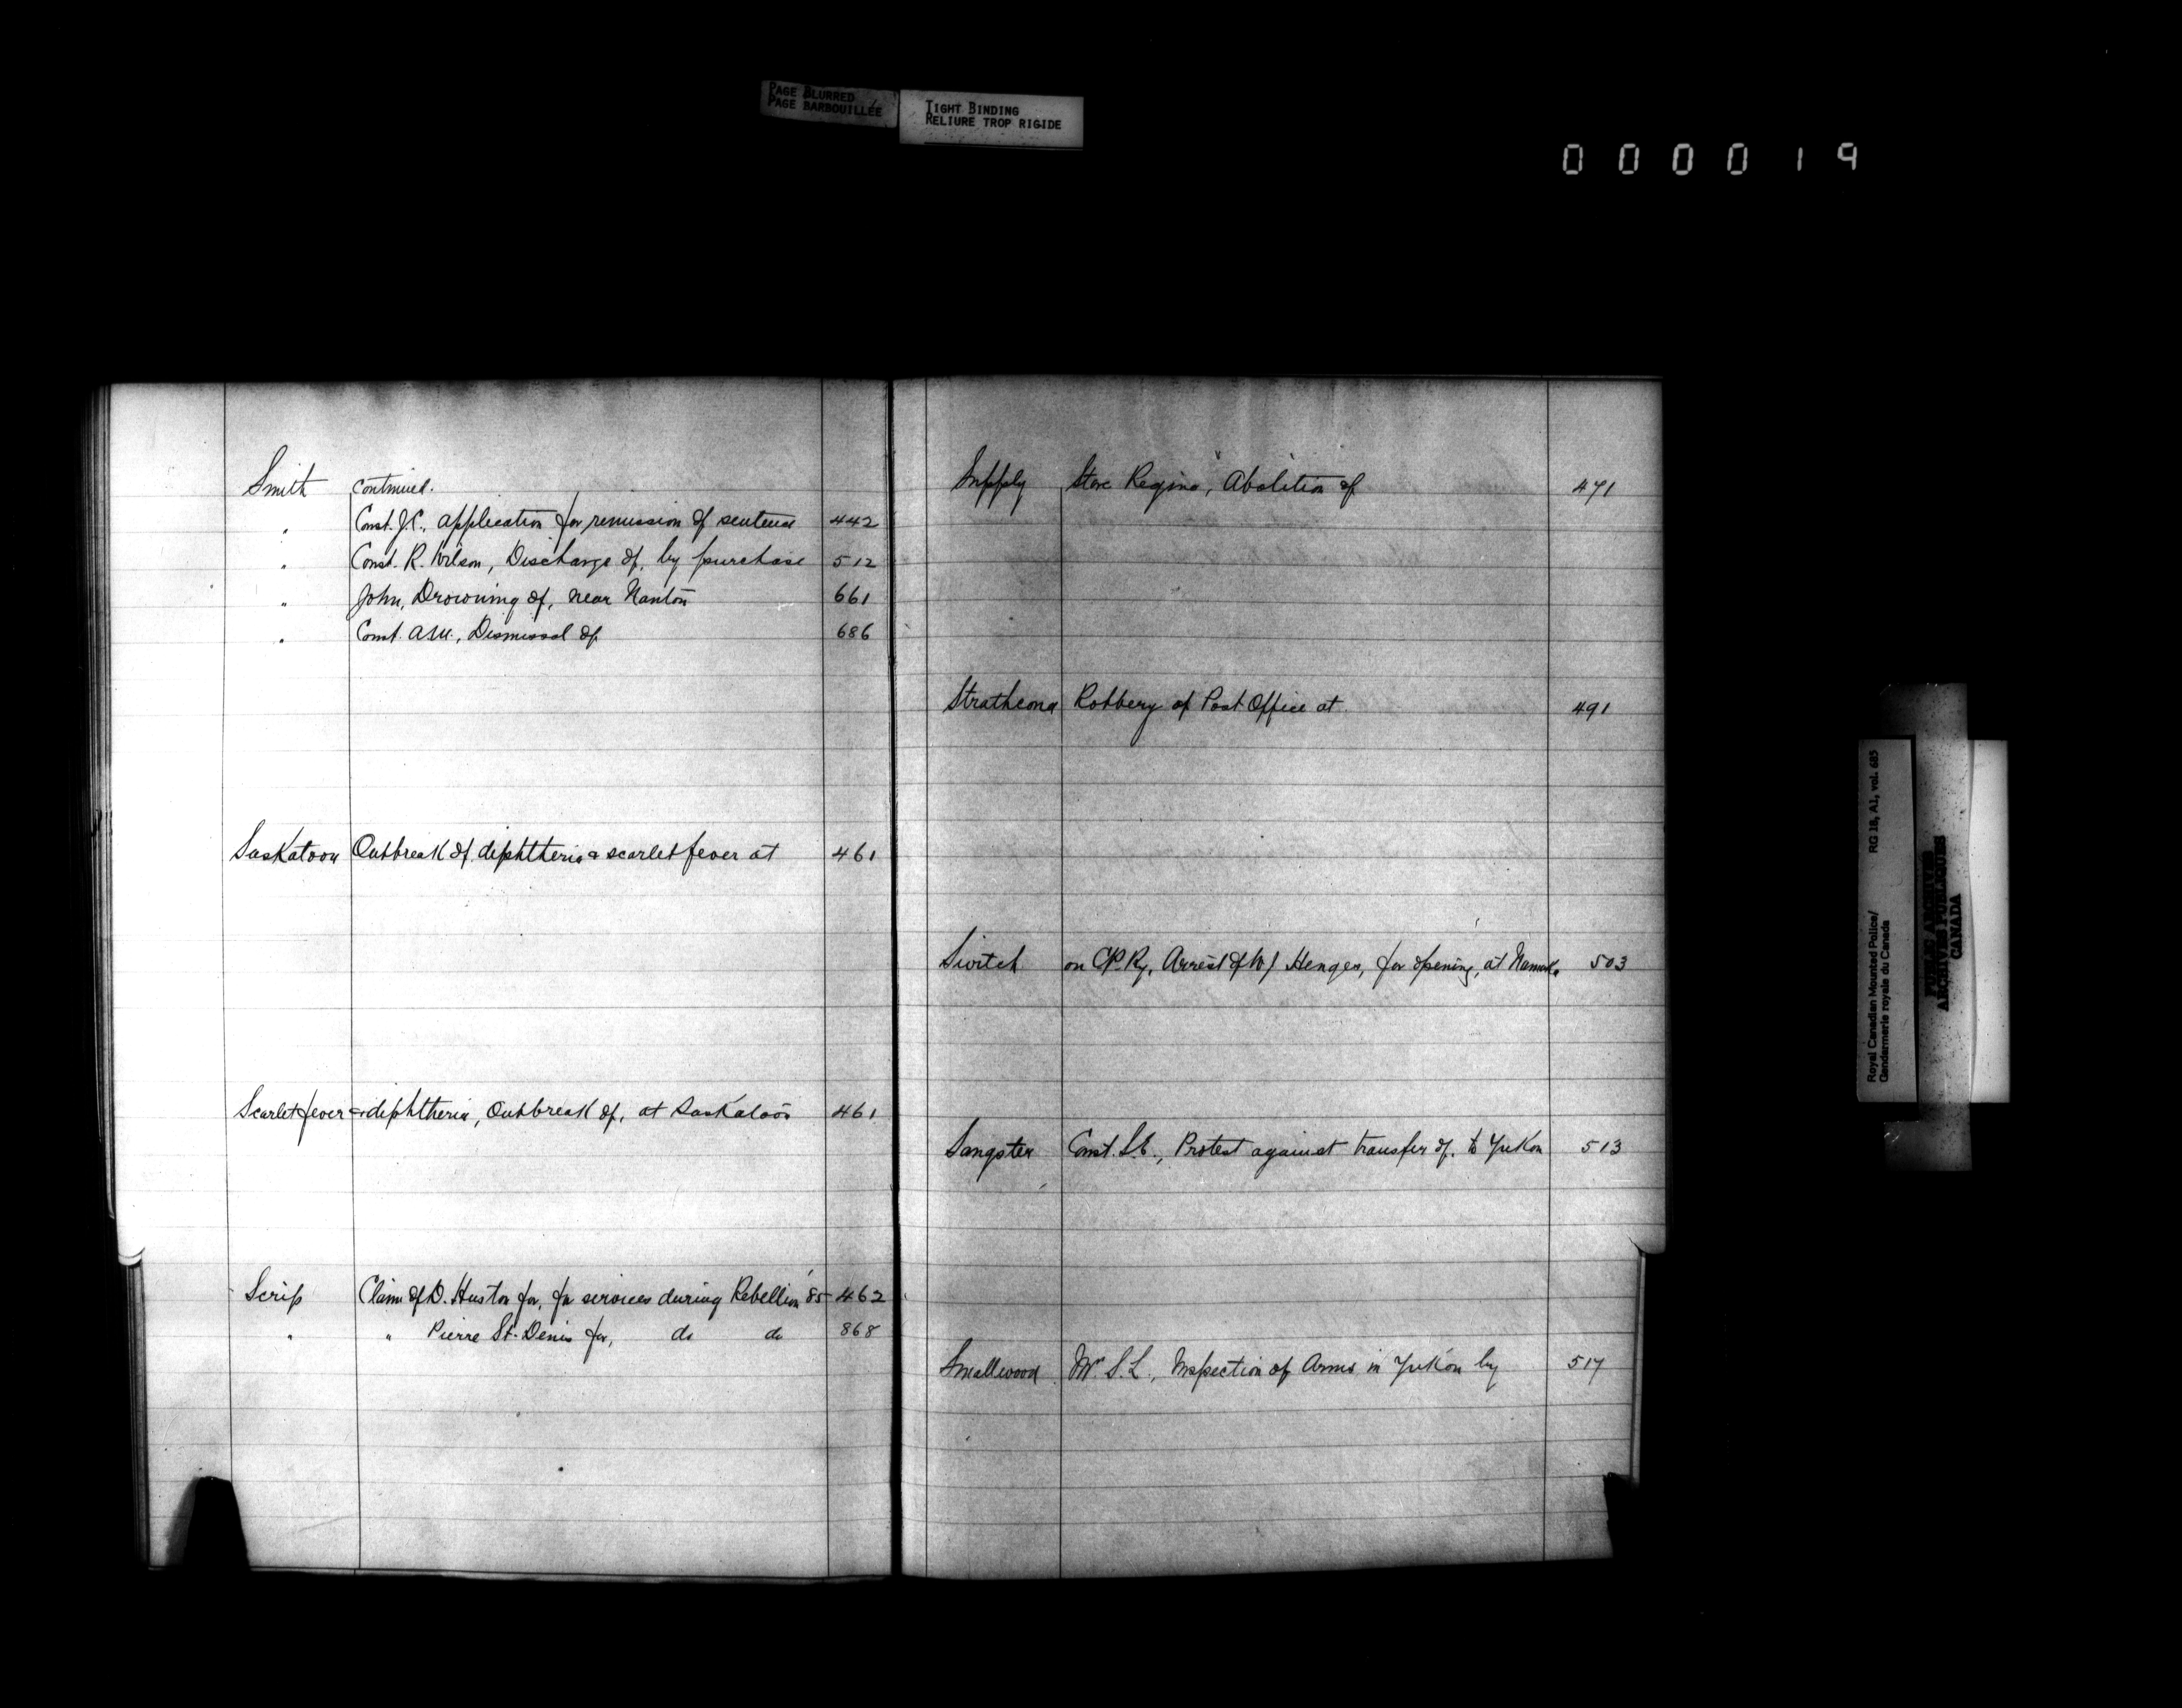 PAGE BLURRED
PAGE BARBOUILLÉE
TIGHT BINDING
RELIURE TROP RIGIDE
000019
Smith continued.
" Const. J.C., application for remission of sentence 442
" Const. R. Wilson, Discharge of, by purchase 512
" John, Drowning of, near Nanton 661
" Const. A.W., Dismissal of 686
Saskatoon Outbreak of diphtheria & scarlet fever at 461
Scarlet fever & diphtheria, Outbreak of, at Saskatoon 461
Scrip Claim of D. Huston for, for services during Rebellion '85 462
" " Pierre St. Denis for, do do 868
Supply Store Regina, Abolition of 471
Strathcona Robbery of Post Office at 491
Switch on C.P. Ry, Arrest of W J Henger, for opening, at 503
Sangster Const. S.E., Protest against transfer of, to Yukon 513
Smallwood Mr. S.L., Inspection of Arms in Yukon by 517
Royal Canadian Mounted Police/ RG 18, A1, vol. 685
Gendarmerie royale du Canada
PUBLIC ARCHIVES
ARCHIVES PUBLIQUES
CANADA